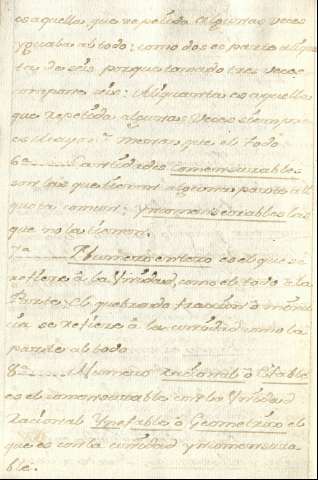 es aquella, que repetida algunas veces
yguala al todo; como dos es parte aliquo
ta de seis porque tomado tres veces
compone seis: Aliquanta es aquella
que repetida algunas veces siempre
es mayor, ò menor que el todo
6ª Cantidades Comensurables
son las que tienen alguna parte ali
quota comun; yncomensurables las
que no la tienen.
7ª Numero entero es el que se
refiere â la Vnidad, como el todo â la
Parte; el quebrado fraccion ò
se refiere â la unidad como la
parte al todo
8ª Numero racional ò
es el comensurable con la Vnidad
racional Ynefable ò Geometrico el
que es con la unidad yncomensura
ble.